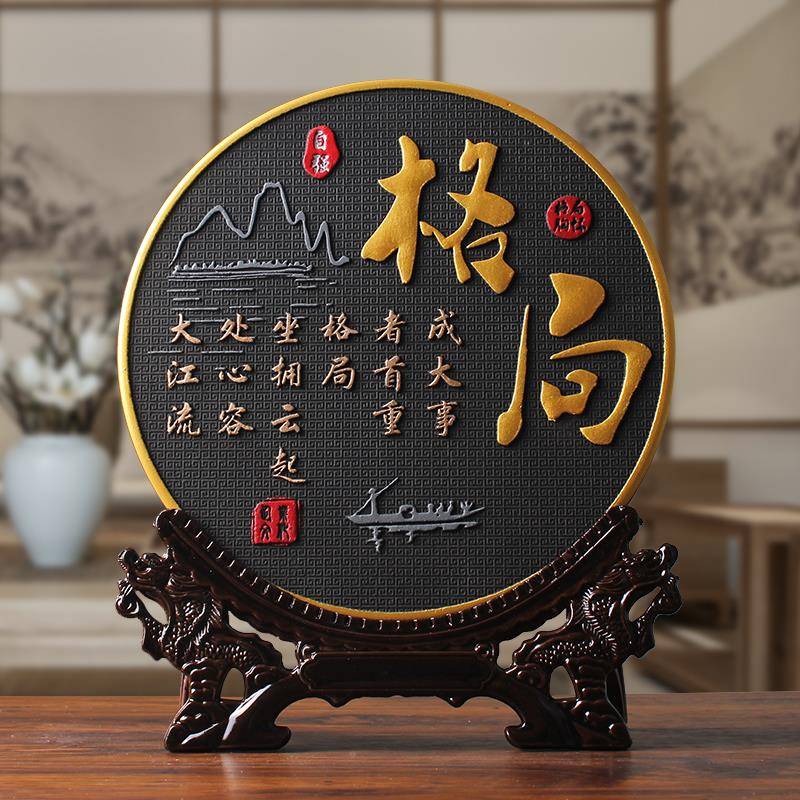 格局
成大事
者首重
格局
坐拥云起
处心容
大江流
自强